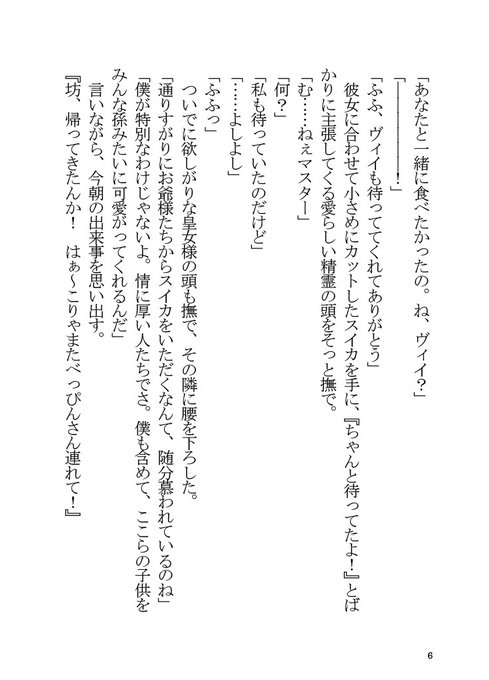 「あなたと一緒に食べたかったの。ね、ヴィイ？」
「――――――！」
「ふふ、ヴィイも待っててくれてありがとう」
彼女に合わせて小さめにカットしたスイカを手に、『ちゃんと待ってたよ！』とば
かりに主張してくる愛らしい精霊の頭をそっと撫で。
「む……ねぇマスター」
「何？」
「私も待っていたのだけど」
「……よしよし」
「ふふっ」
ついでに欲しがりな皇女様の頭も撫で、その隣に腰を下ろした。
「通りすがりにお爺様たちからスイカをいただくなんて、随分慕われているのね」
「僕が特別なわけじゃないよ。情に厚い人たちでさ。僕も含めて、ここらの子供を
みんな孫みたいに可愛がってくれるんだ」
言いながら、今朝の出来事を思い出す。
『坊、帰ってきたんか！　はぁ～こりゃまたべっぴんさん連れて！』
6